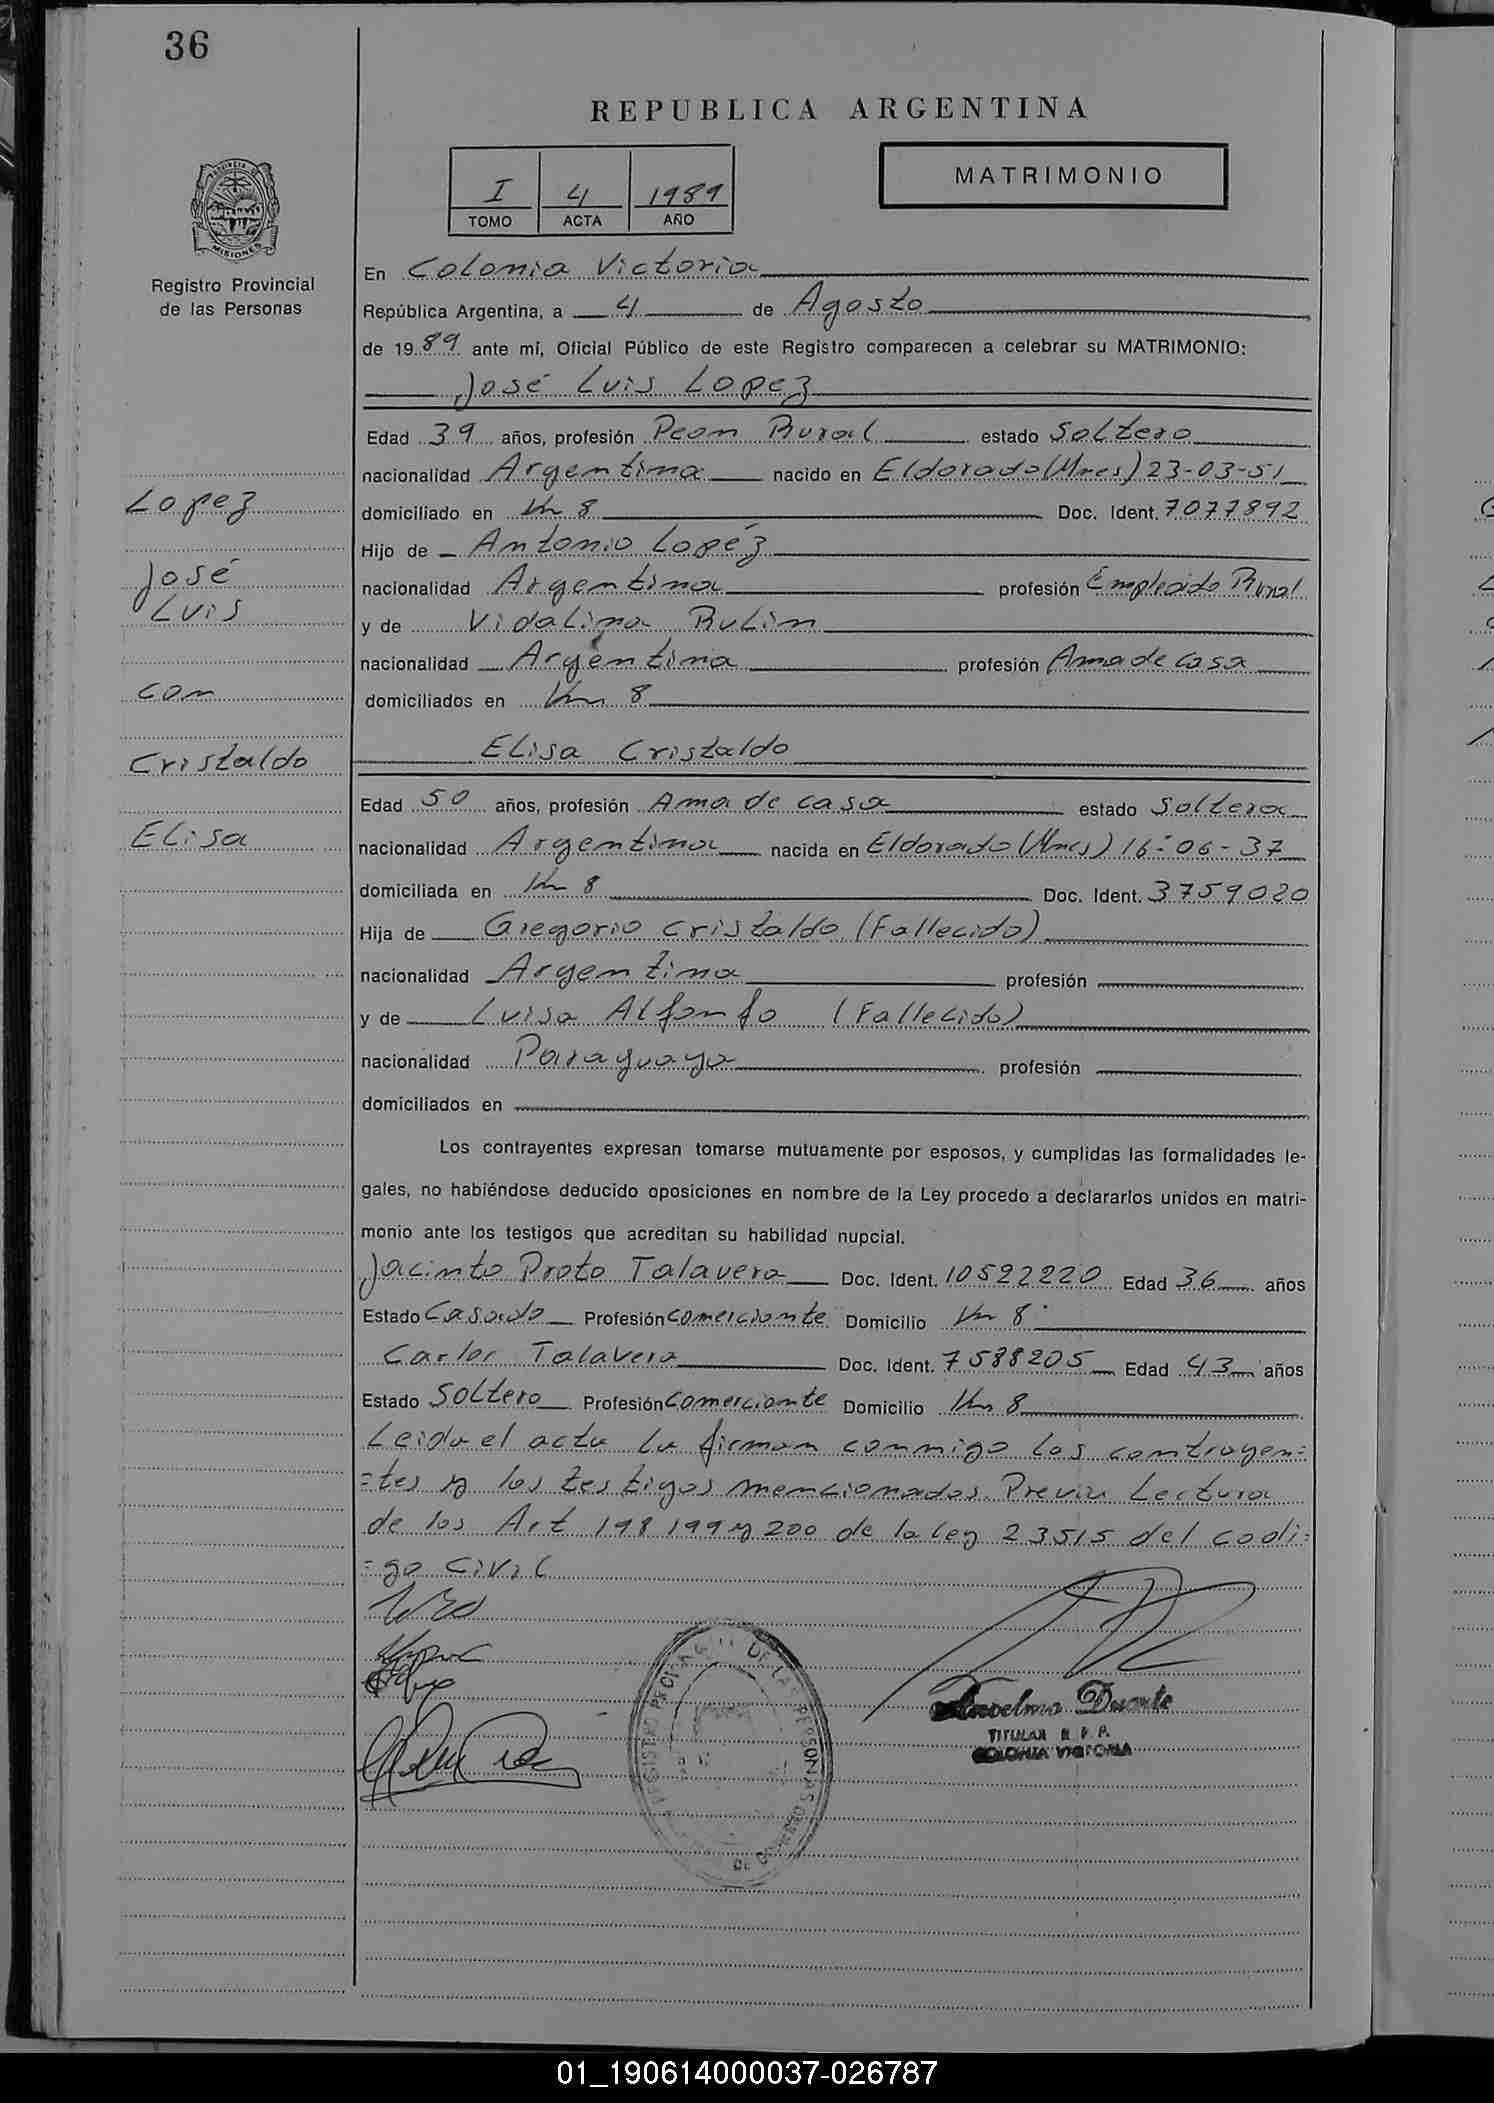 36
REPUBLICA ARGENTINA
MATRIMONIO
I 4 1989
TOMO ACTA AÑO
PROVINCIA DE
MISIONES
Registro Provincial
de las Personas
En Colonia Victoria
República Argentina, a 4 de Agosto
de 1989 ante mí, Oficial Público de este Registro comparecen a celebrar su MATRIMONIO:
José Luis Lopez
Edad 39 años, profesión Peon Rural estado Soltero
nacionalidad Argentina nacido en Eldorado (Mnes) 23-03-51
domiciliado en Km 8 Doc. Ident. 7077892
Hijo de Antonio Lopéz
nacionalidad Argentina profesión Empleado Rural
y de Vidalina Rulin
nacionalidad Argentina profesión Ama de casa
domiciliados en Km 8
Lopez
José
Luis
con
Cristaldo
Elisa
Elisa Cristaldo
Edad 50 años, profesión Ama de casa estado Soltera
nacionalidad Argentina nacida en Eldorado (Mnes) 16-06-37
domiciliada en Km 8 Doc. Ident. 3759020
Hija de Gregorio Cristaldo (Fallecido)
nacionalidad Argentina profesión
y de Luisa Alfonso (Fallecido)
nacionalidad Paraguaya profesión
domiciliados en
Los contrayentes expresan tomarse mutuamente por esposos, y cumplidas las formalidades le-
gales, no habiéndose deducido oposiciones en nombre de la Ley procedo a declararlos unidos en matri-
monio ante los testigos que acreditan su habilidad nupcial.
Jacinto Proto Talavera Doc. Ident. 10522220 Edad 36 años
Estado Casado Profesión comerciante Domicilio Km 8
Carlos Talavera Doc. Ident. 7588205 Edad 43 años
Estado Soltero Profesión comerciante Domicilio Km 8
Leida el acta la firman conmigo los contrayen=
=tes y los testigos mencionados. Previa Lectura
de los Art 198 199 y 200 de la ley 23515 del codi=
=go Civil
REGISTRO DE LAS PERSONAS
Anselmo Duarte
TITULAR R. P. P.
COLONIA VICTORIA
01_190614000037-026787